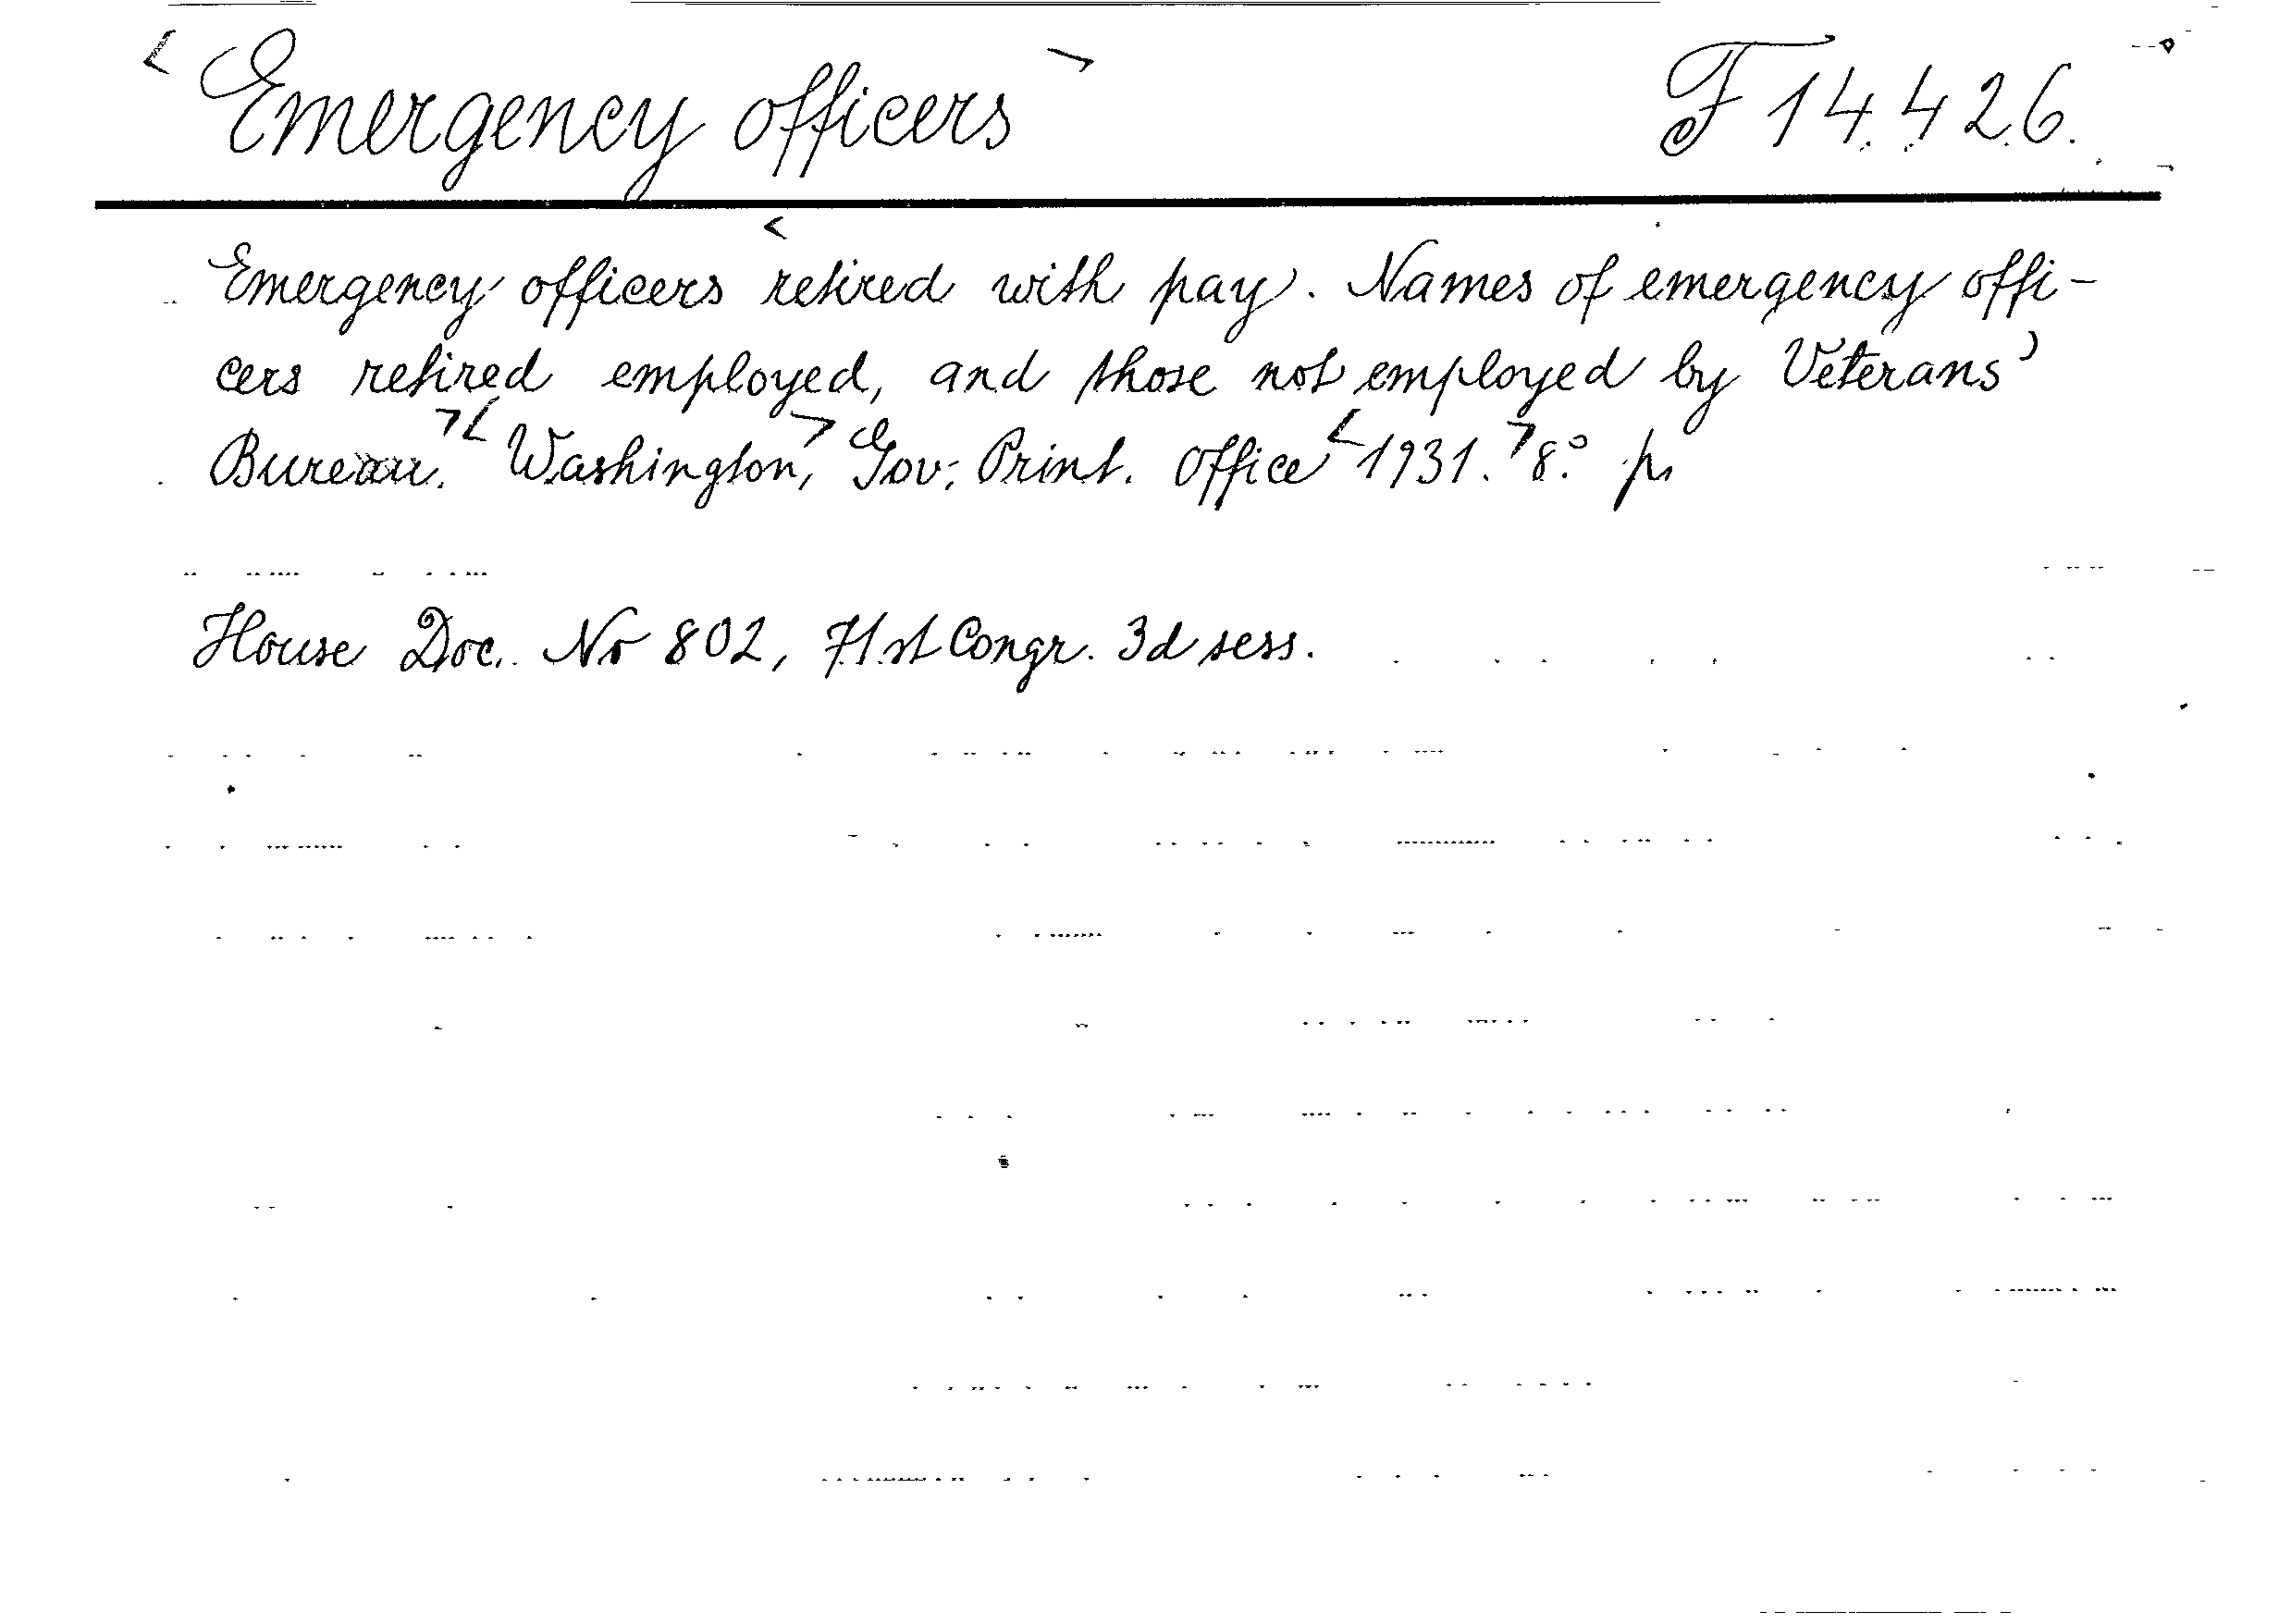 Emergency officers F 14.426.
Emergency officers retired with pay. Names of emergency offi-
cers retired employed, and those not employed by Veterans'
Bureau. Washington, Gov. Print. Office 1931. 8° p.
House Doc. No 802, 71st Congr. 3d sess.